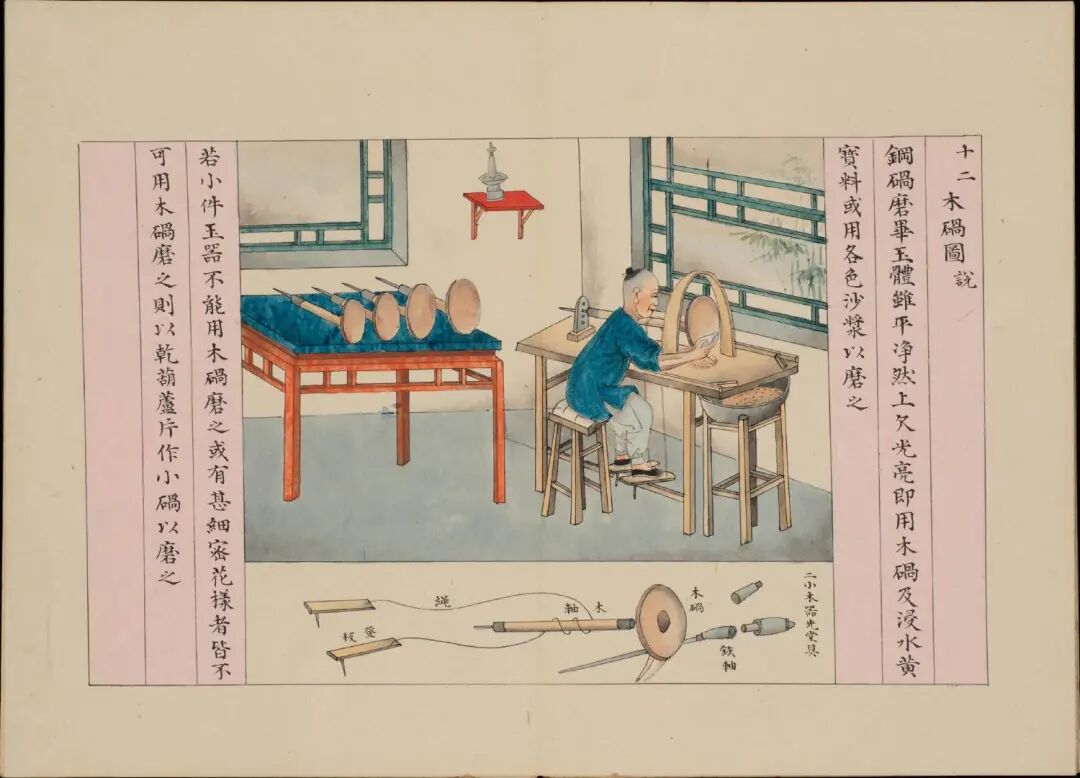 十二木碢圖說
鋼碢磨畢玉體雖平净然上欠光亮即用木碢及浸水黄
寶料或用各色沙漿以磨之
若小件玉器不能用木碢磨之或有甚細密花樣者皆不
可用木碢磨之則以乾葫蘆片作小碢以磨之
二小木器光堂具
木碢
鉄軸
木軸
繩
登板